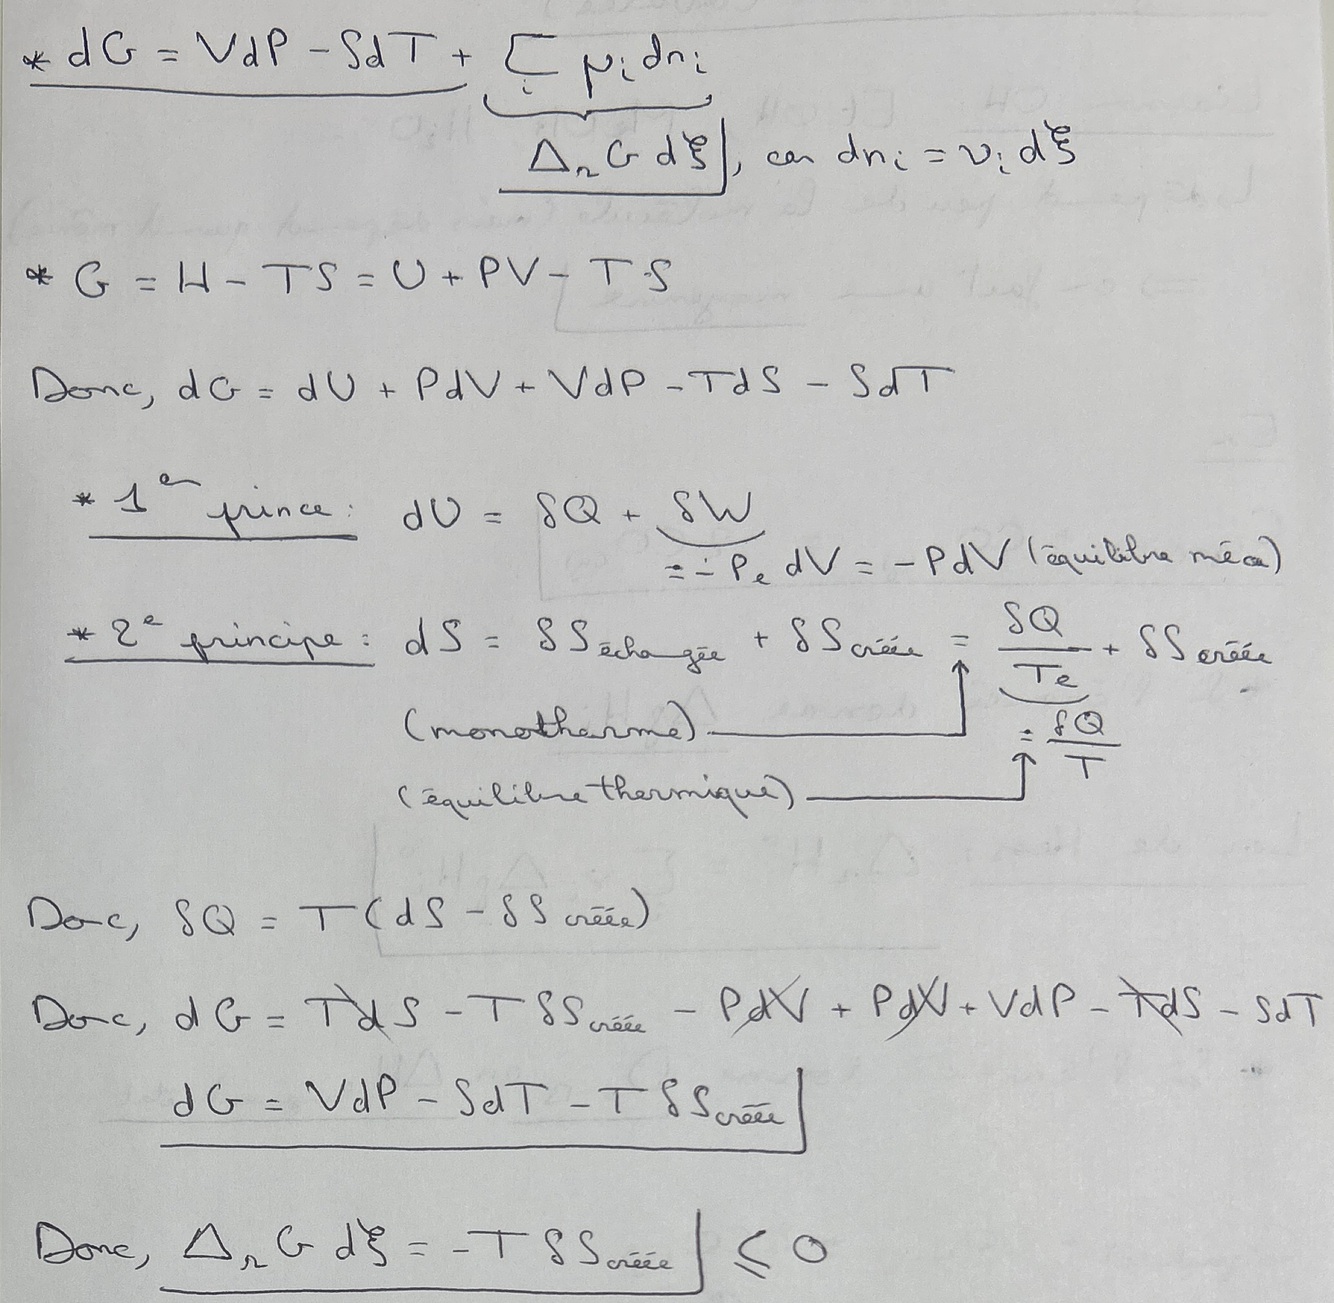 * dG = VdP - SdT + Σ_i μ_i dn_i
Δ_r G dξ, car dn_i = ν_i dξ
* G = H - TS = U + PV - TS
Donc, dG = dU + PdV + VdP - TdS - SdT
* 1er prince : dU = δQ + δW
= - P_e dV = - PdV (équilibre méca)
* 2e principe : dS = δS échangée + δS créée = δQ/Te + δS créée
(monotherme) = δQ/T
(équilibre thermique)
Donc, δQ = T(dS - δS créée)
Donc, dG = TdS - T δS créée - PdV + PdV + VdP - TdS - SdT
dG = VdP - SdT - T δS créée
Donc, Δ_r G dξ = -T δS créée ⩽ 0